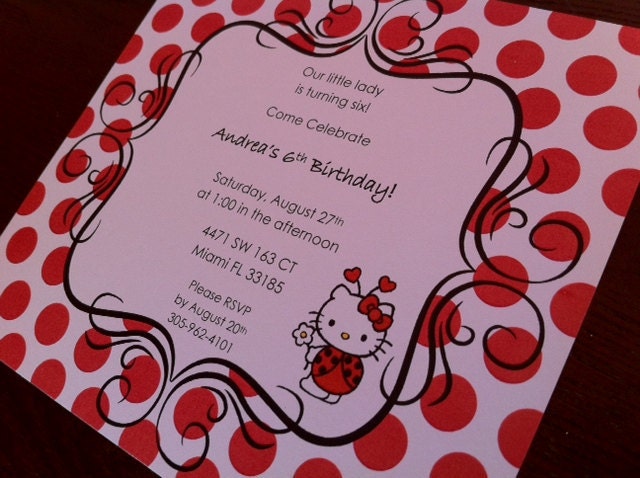 Our little lady
is turning six!
Come Celebrate
Andrea's 6th Birthday!
Saturday, August 27th
at 1:00 in the afternoon
4471 SW 163 CT
Miami FL 33185
Please RSVP
by August 20th
305-962-4101